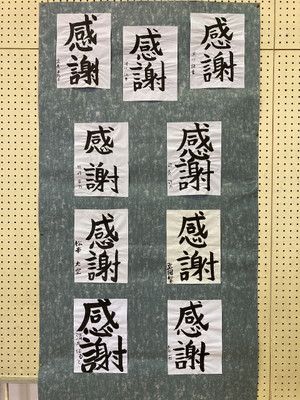 感謝
感謝
感謝
感謝
感謝
感謝
感謝
感謝
感謝